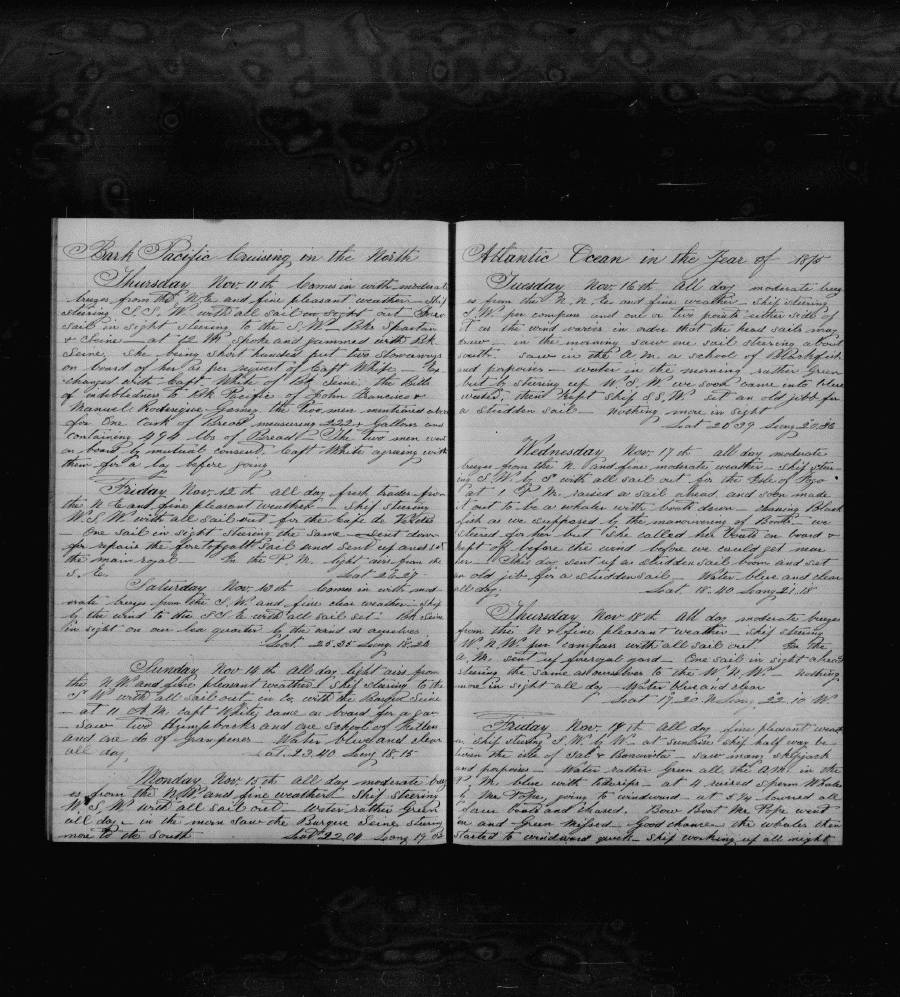 Bark Pacific Cruising in the North
Thursday Nov. 11th Comes in with moderate
breezes from the N.E. and fine pleasant weather Ship
steering S.S.W. with all sail on sight out
sail in sight steering to the S.W. Bks Spartan
& Seine at 12 M. Spoke and gammed with Bk
Seine. She being short handed put two Stowaways
on board of her as per request of Capt White
changed with Capt. White of Bk Seine, the Bills
of indebtedness to Bk Pacific of John Francisco &
Manuel Rodrigue Gomez the two men mentioned above
for One Cask of Bread measuring 222 Gallons and
containing 494 lbs of Bread The two men went
on board by mutual consent. Capt White agreeing with
them for a lay before going
Friday Nov. 12th all day fresh trades from
the N.E. and fine pleasant weather Ship steering
W.S.W. with all sail out for the Cape de Verdes
One sail in sight steering the same sent down
for repairs the foretopgall sail and sent up and set
the main royal In the P.M. light airs from the
S.E. Lat 26.27
Saturday Nov. 13th comes in with mod-
erate breezes from the S.W. and fine clear weather ship
by the wind to the S.S.E. with all sail set Bk Seine
in sight on our lea quarter by the wind as ourselves
Lat. 25.35 Long 18.24
Sunday Nov. 14th all day light airs from
the N.W. and fine pleasant weather Ship steering to the
S.W. with all sail out in Co. with the Barque Seine
at 11 A.M. Capt White came on board for a gam
saw two Humpbacks and one school of Killers
and one do of grampuses Water blue and clear
all day, Lat. 23.40 Long 18.15
Monday Nov. 15th all day moderate breez
es from the N.W. and fine weather Ship Steering
W.S.W. with all sail out. Water rather Green
all day in the morn saw the Barque Seine steering
more to the South Lat 22.04 Long 19.02
Atlantic Ocean in the Year of 1875
Tuesday Nov. 16th all day moderate breez
es from the N.N.E. and fine weather Ship steering
S.W. per compass and one or two points either side of
it as the wind varies in order that the head sails may
draw in the morning saw one sail steering about
south. saw in the A.M. a school of Blackfish
and porpoises water in the morning rather Green
but by steering up W.S.W. we soon came into blue
water, then kept ship S.S.W. set an old jibb for
a studden sail nothing more in sight
Lat 20.39 Long 20.36
Wednesday Nov. 17th all day moderate
breezes from the N. and fine moderate weather ship steer-
ing S.W. by S with all sail out for the Isle of Fogo
at 1 P.M. raised a sail ahead, and soon made
it out to be a whaler with boats down chasing Black
fish as we supposed by the manouvering of Boats we
steered for her but she called her boats on board &
kept off before the wind before we could get near
her This day sent up a studdensail boom and set
an old jib for a studdensail Water blue and clear
all day; Lat. 18.40 Long 21.18
Thursday Nov 18th all day moderate breezes
from the N. & fine pleasant weather ship steering
W.N.W. per compass with all sail out. In the
A.M. sent up foreroyal yard One sail in sight ahead
steering the same as ourselves to the W.N.W. nothing
more in sight all day Water blue and clear
Lat 17.20 N Long 22.10 W.
Friday Nov. 19th all day fine pleasant weath
er. Ship steering S.W. by W. at sunrise ship half way be
tween the isle of Sal & Bonavista saw many skipjack
and porpoises Water rather Green all the A.M. in the
P.M. blue with tiderips at 4 raised Sperm Whales
by Mr. Foster, going to windward at 5¼ lowered all
four boats and chased. Bow boat Mr. Pope went
on and Green missed Good chance the whales then
started to windward quick ship working up all night